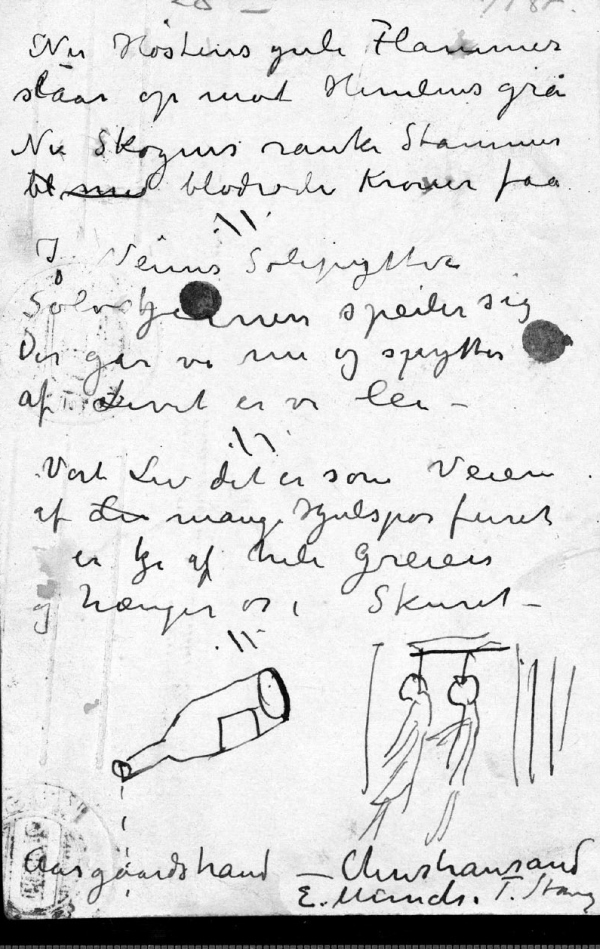 Nu Høstens gule Flammer
slaar op mot Himlens grå
Nu Skogens ranke Stammer
blodrøde Kroner faa
I Veiens Sølepytter
Sølvstjernen speiler sig
Der går vi nu og spytter
af Livet er vi lei –
Vort Liv det er som Veien
af mange Hjulspor furet
er kje af hele Greien
og hænger os i Skuret –
Aasgaardstrand – Christiansand
E. Munch. T. Stang